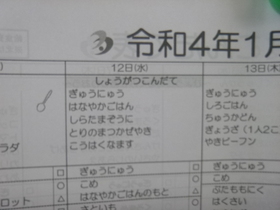 令和4年1月
12日(水)
13日(木
しょうがつこんだて
ぎゅうにゅう
はなやかごはん
しらたまぞうに
とりのまつかぜやき
こうはくなます
ぎゅうにゅう
しろごはん
ちゅうかどん
ぎょうざ(1人2こ
やきビーフン
ラダ
□ ぎゅうにゅう
○ こめ
△ はなやかごはんのもと
○ さといも
□ ぎゅうにゅう
○ こめ
□ ぶたももにく
△ はくさい
ロット